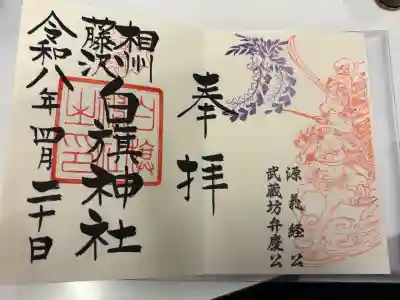 源義経公
武蔵坊弁慶公
奉拝
相州
藤沢
白旗神社
令和八年四月二十日